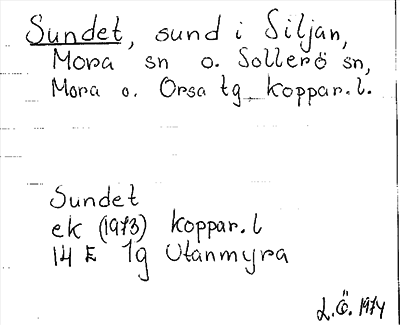 Sundet, sund i Siljan,
Mora sn o. Sollerö sn,
Mora o. Orsa tg koppar.l.
Sundet
ek (1973) koppar.l
14 E 1g Utanmyra
L.Ö. 1974